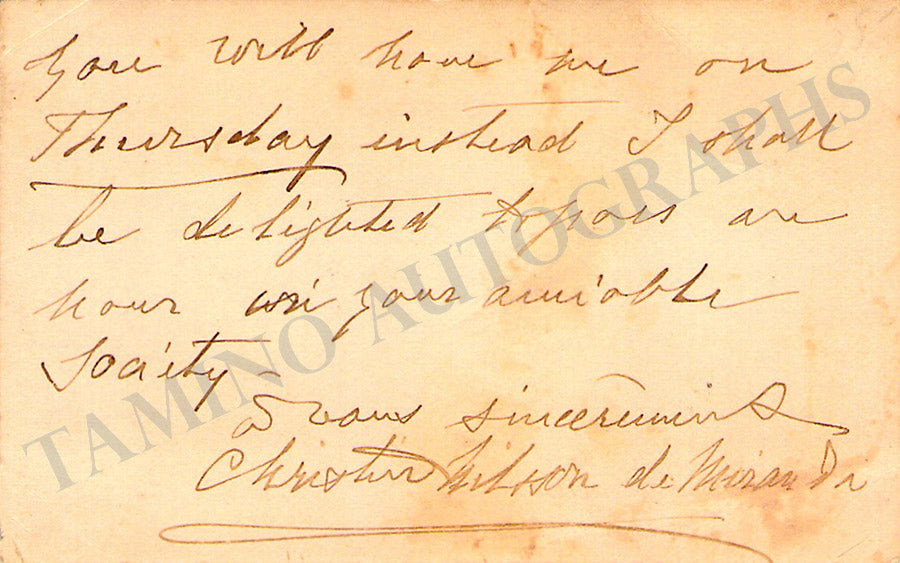 you will have me on
Thursday instead I shall
be delighted to pass an
hour in your amiable
Society –
à vous sincèrement
Christine Nilsson de Miranda
TAMINO AUTOGRAPHS